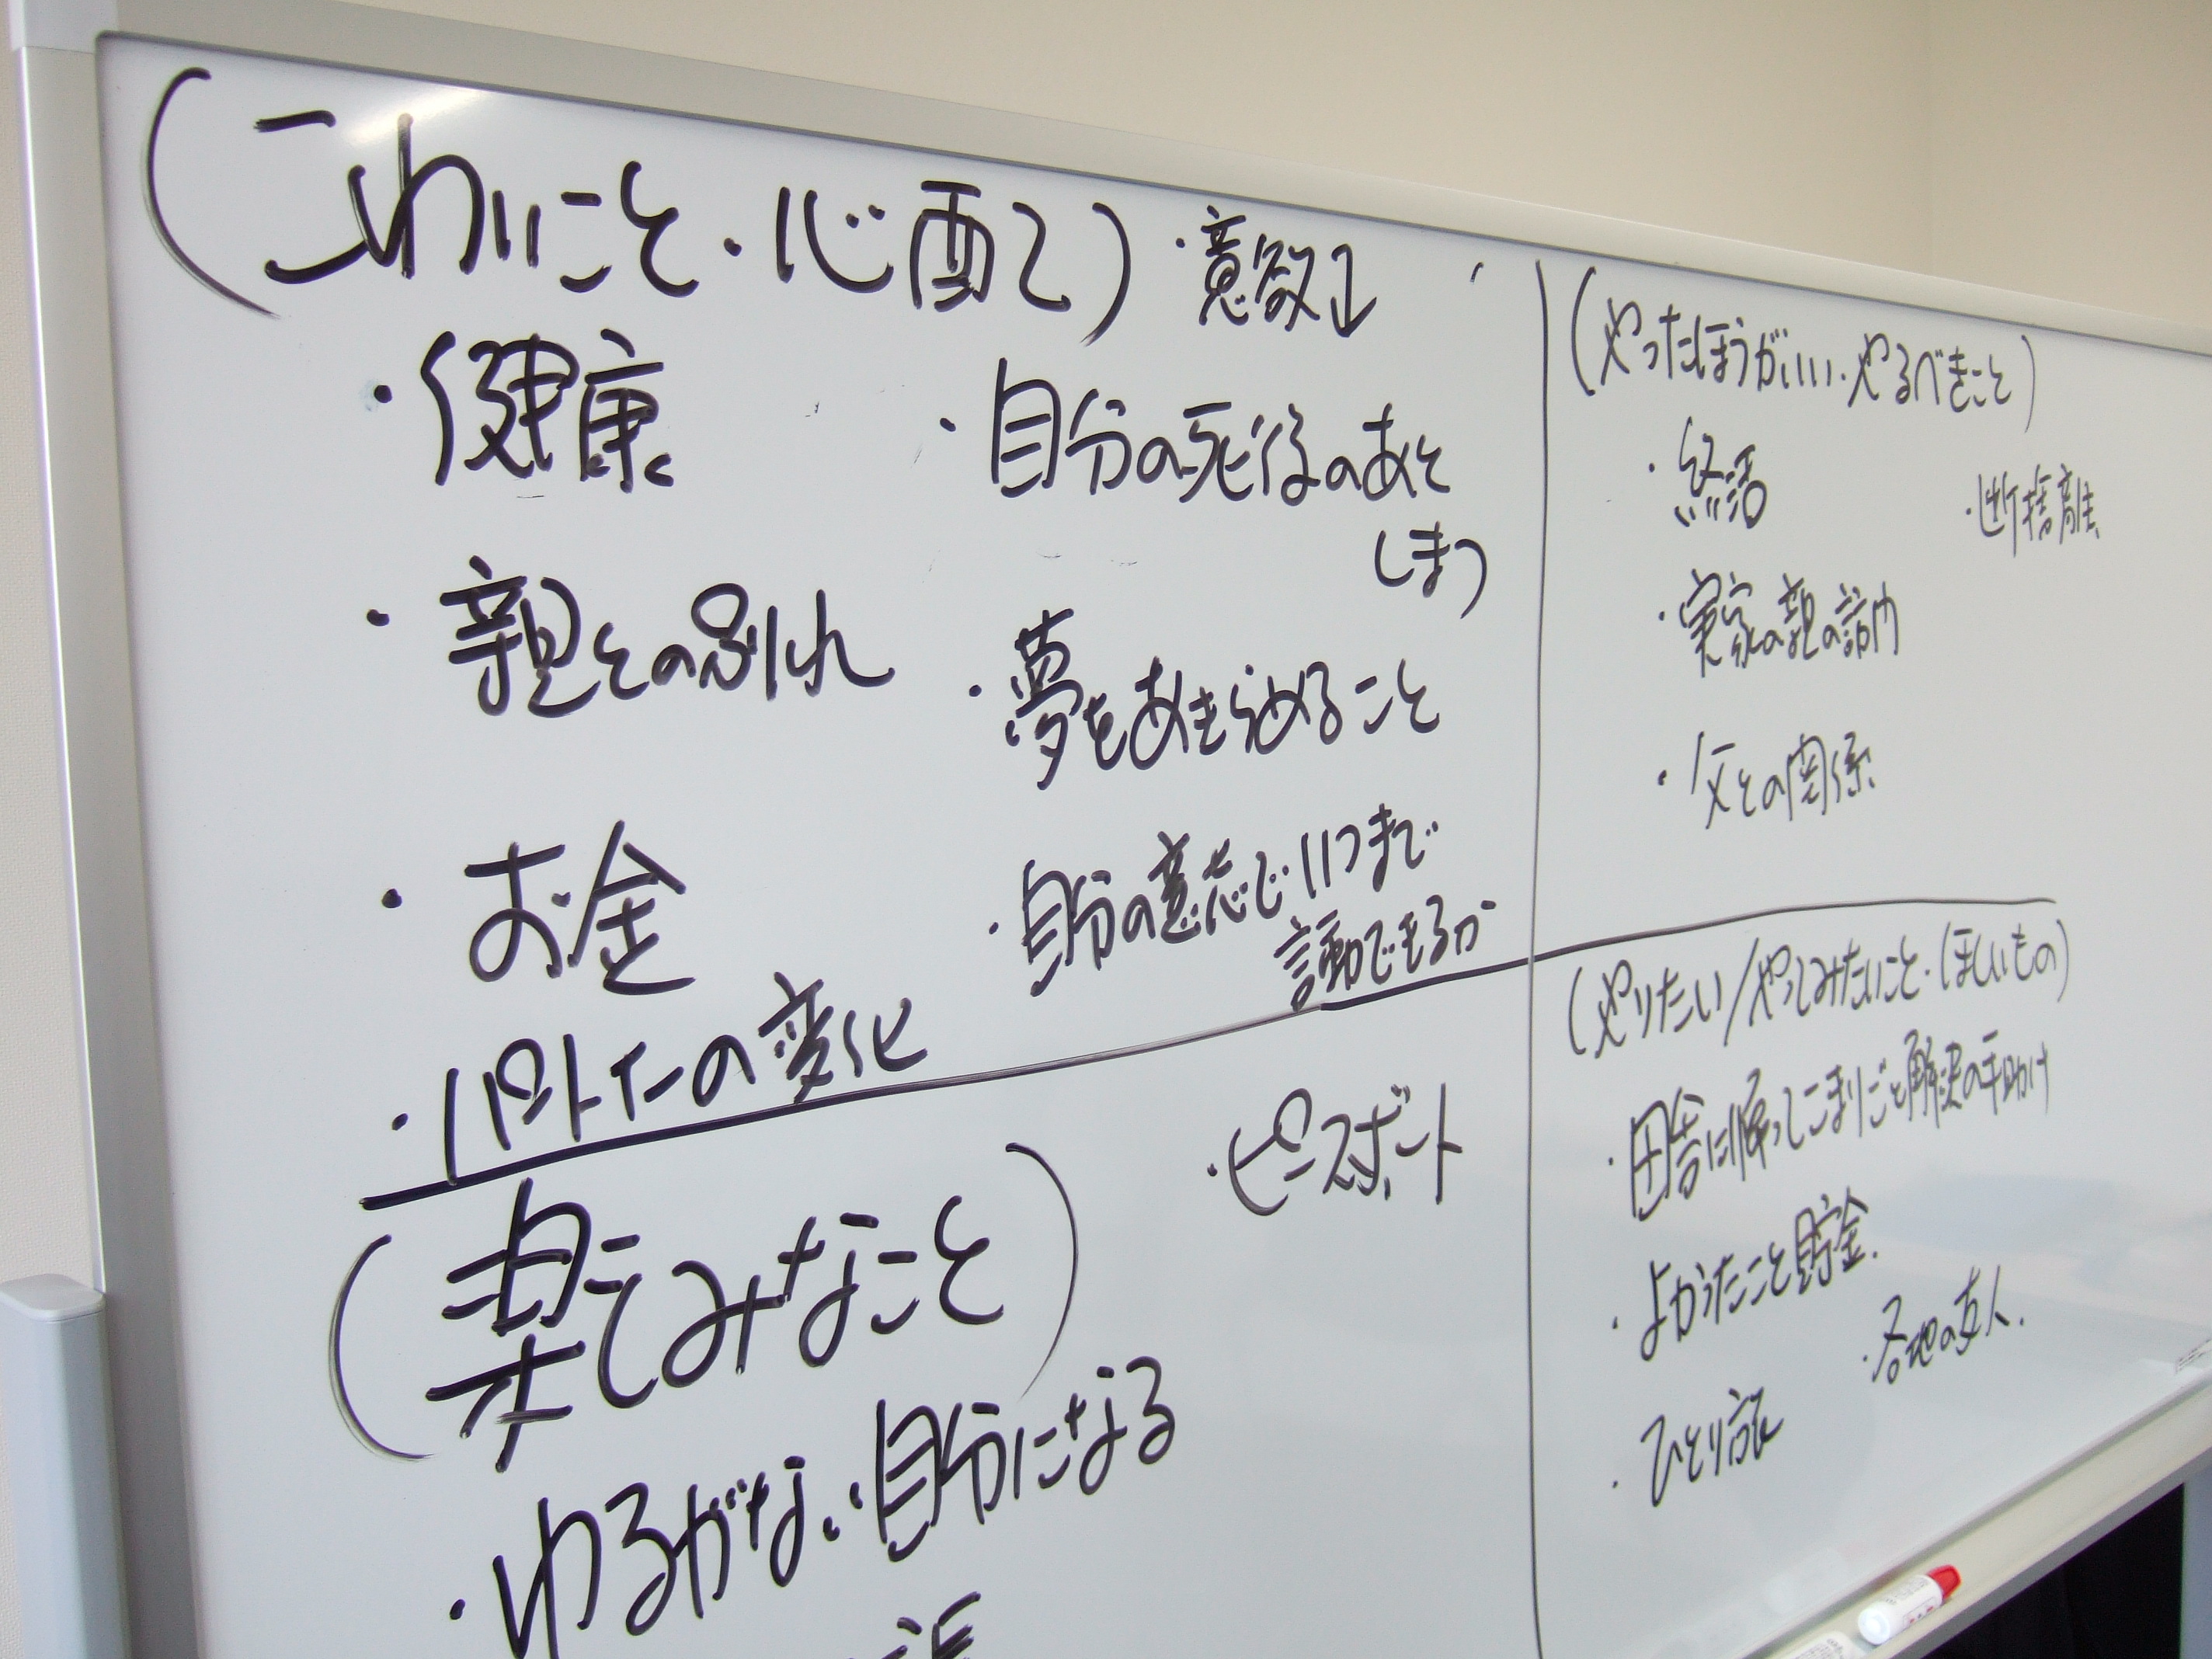 (こわいこと・心配こ)
・意欲↓
・健康
・親との別れ
・お金
・パートナーの変化
・自分の死後のあと
しまつ
・夢をあきらめること
・自分の意志でいつまで
言動できるか
(やったほうがいい・やるべきこと)
・終活
・断捨離
・実家の親の訪問
・父との関係
(楽しみなこと)
・ピースボート
・ゆるがない自分になる
(やりたい/やってみたいこと・ほしいもの)
・田舎に帰ってこまりごと解決の手助け
・よかったこと貯金.
・各地の友人.
・ひとり旅